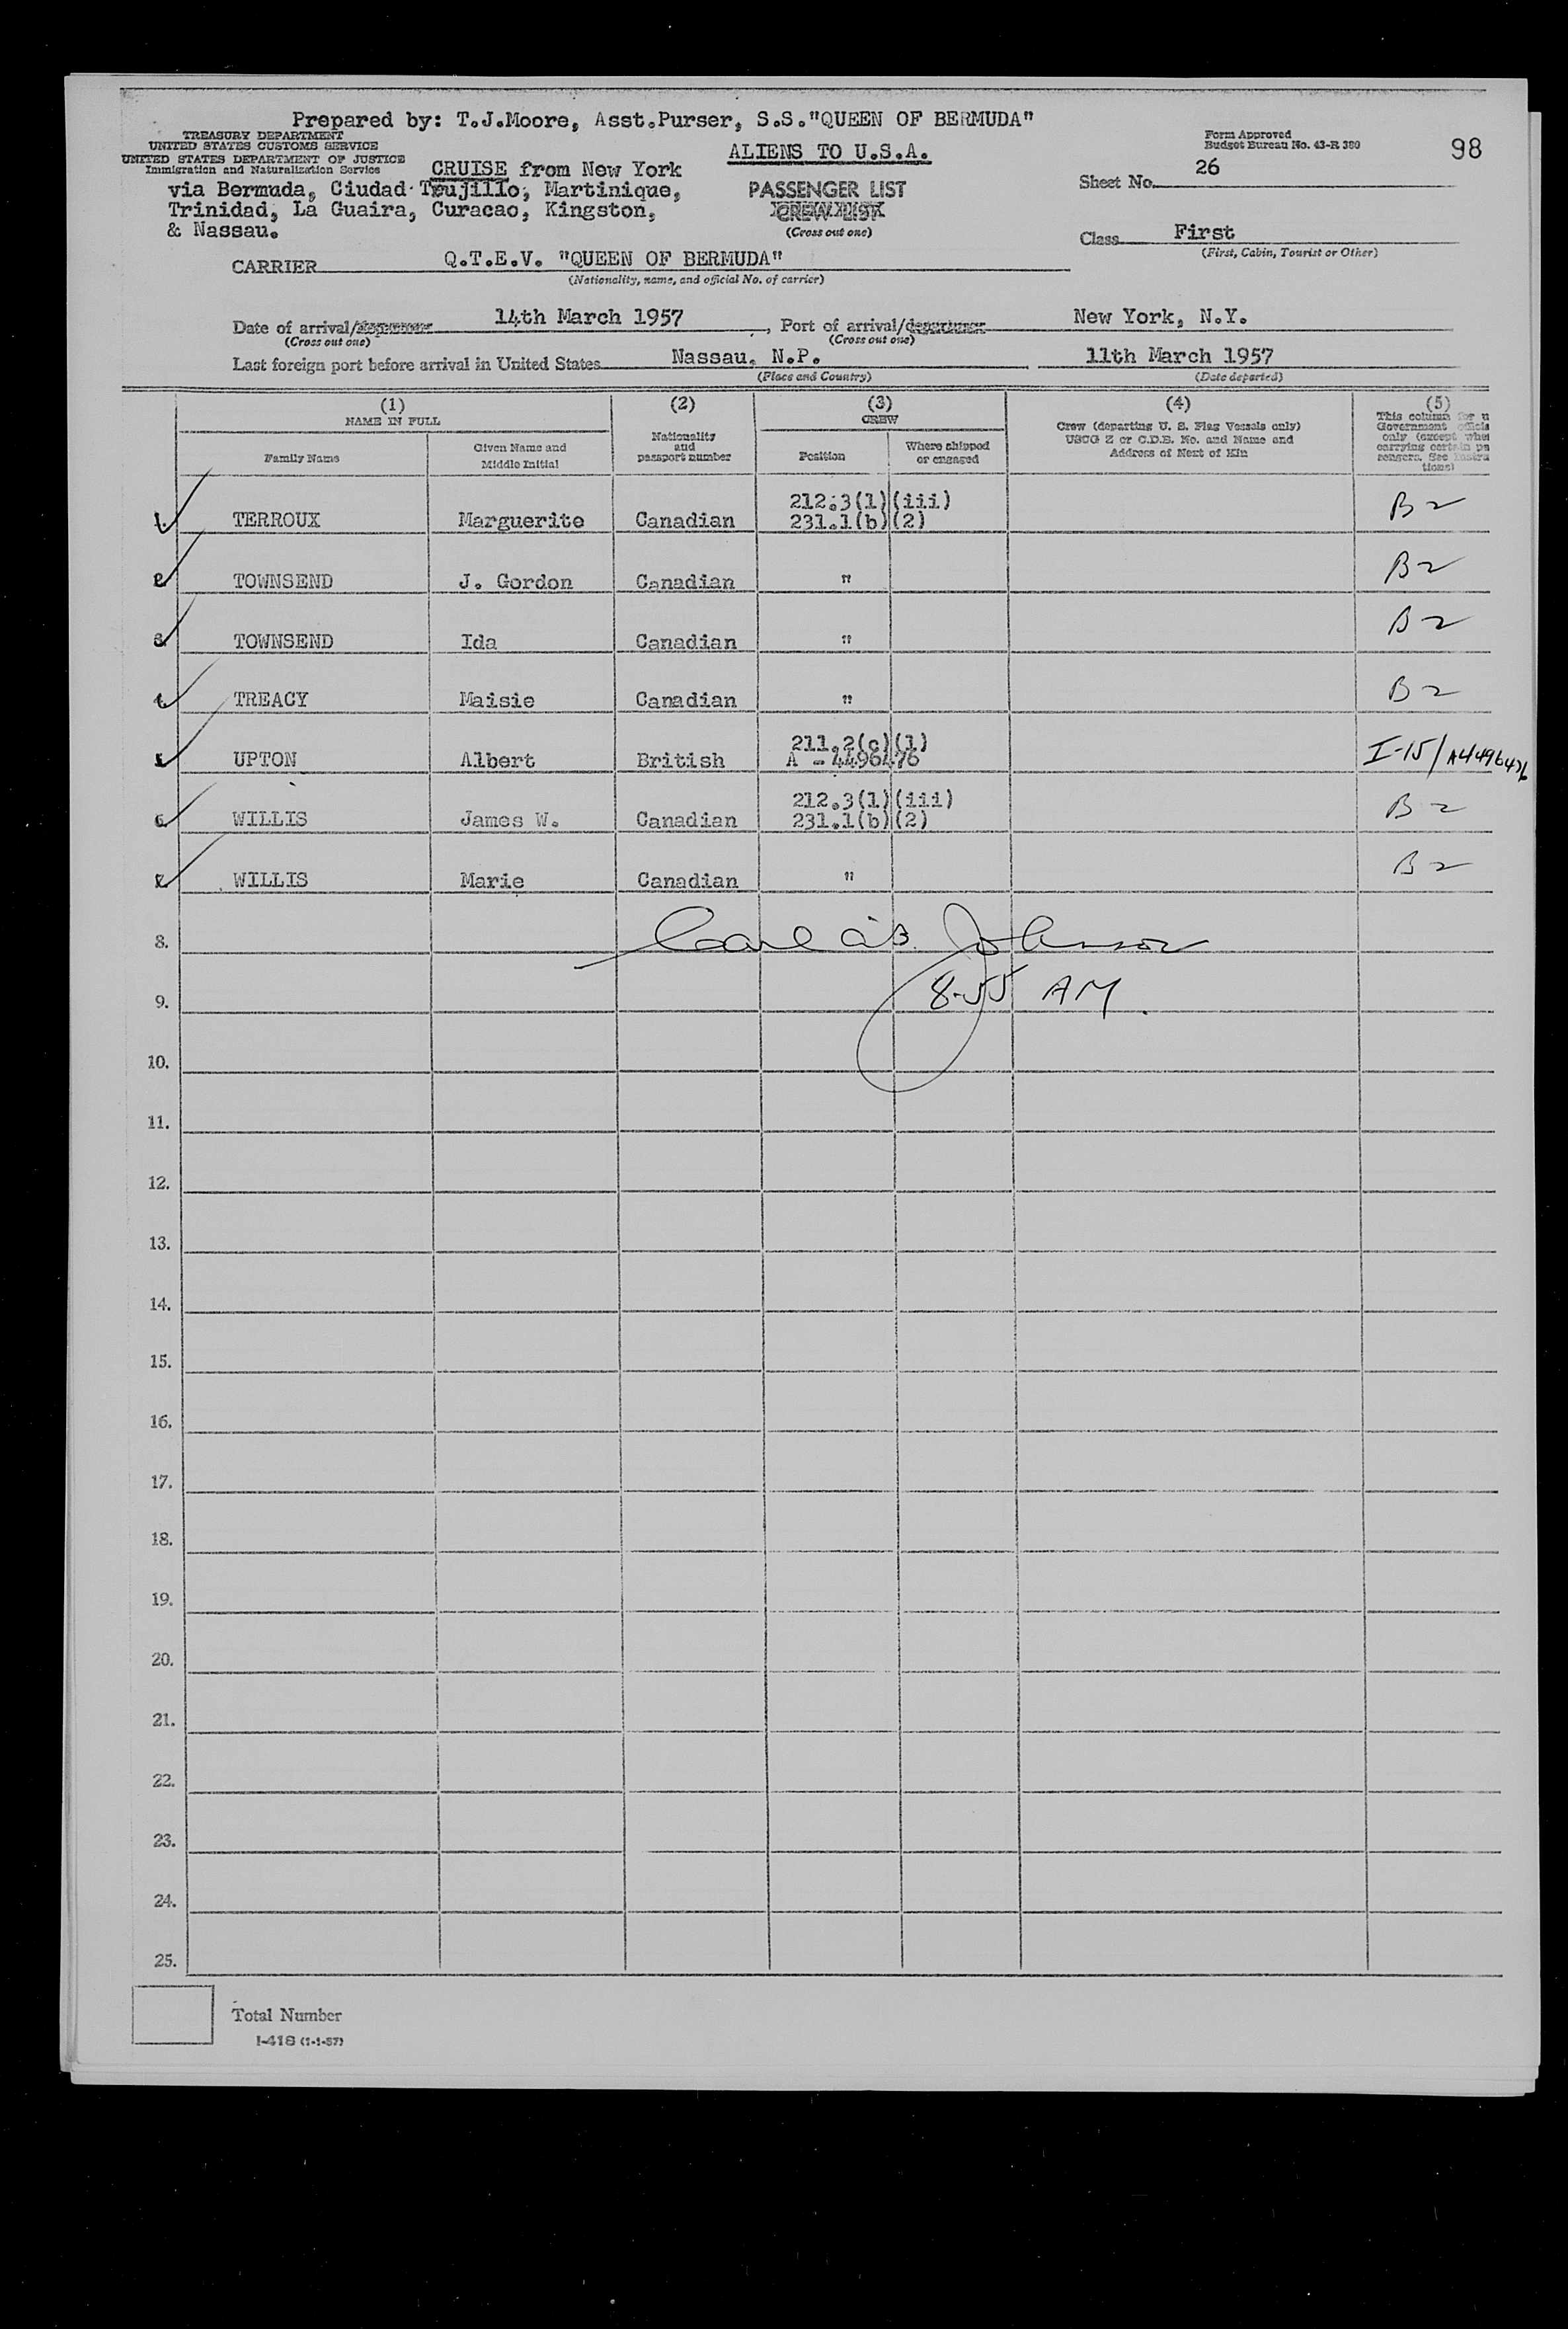 Prepared by: T.J.Moore, Asst.Purser, S.S."QUEEN OF BERMUDA"
TREASURY DEPARTMENT
UNITED STATES CUSTOMS SERVICE
UNITED STATES DEPARTMENT OF JUSTICE
Immigration and Naturalization Service
Form Approved
Budget Bureau No. 43-R 380
98
ALIENS TO U.S.A.
CRUISE from New York
via Bermuda, Ciudad Trujillo, Martinique,
Trinidad, La Guaira, Curacao, Kingston,
& Nassau.
PASSENGER LIST
CREW LIST
(Cross out one)
Sheet No. 26
Class First
(First, Cabin, Tourist or Other)
CARRIER Q.T.E.V. "QUEEN OF BERMUDA"
(Nationality, name, and official No. of carrier)
Date of arrival/departure 14th March 1957, Port of arrival/departure New York, N.Y.
(Cross out one) (Cross out one)
Last foreign port before arrival in United States Nassau, N.P. 11th March 1957
(Place and Country) (Date departed)
(1) (2) (3) (4) (5)
NAME IN FULL
Family Name
Given Name and
Middle Initial
Nationality
and
passport number
CREW
Position
Where shipped
or engaged
Crew (departing U. S. Flag Vessels only)
USCG Z or C.D.B. No. and Name and
Address of Next of Kin
This column for u
Government officia
only (except whe
carrying certain pa
sengers. See Instru
tions)
212.3(1)(iii)
1. TERROUX Marguerite Canadian 231.1(b)(2) B2
2. TOWNSEND J. Gordon Canadian " B2
3. TOWNSEND Ida Canadian " B2
4. TREACY Maisie Canadian " B2
211.2(c)(1)
5. UPTON Albert British A - 4496476 I-15/A4496476
212.3(1)(iii)
6. WILLIS James W. Canadian 231.1(b)(2) B2
7. WILLIS Marie Canadian " B2
8. Johnson
9. 8-55 AM.
10.
11.
12.
13.
14.
15.
16.
17.
18.
19.
20.
21.
22.
23.
24.
25.
Total Number
I-418 (1-1-57)